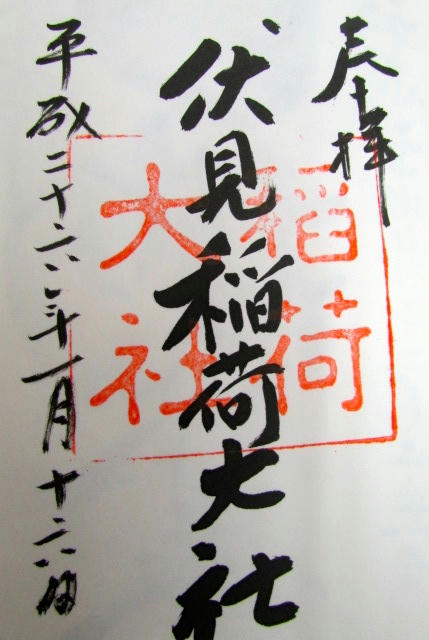 奉拝
伏見稲荷大社
稲荷
大社
平成二十六年十一月十六日